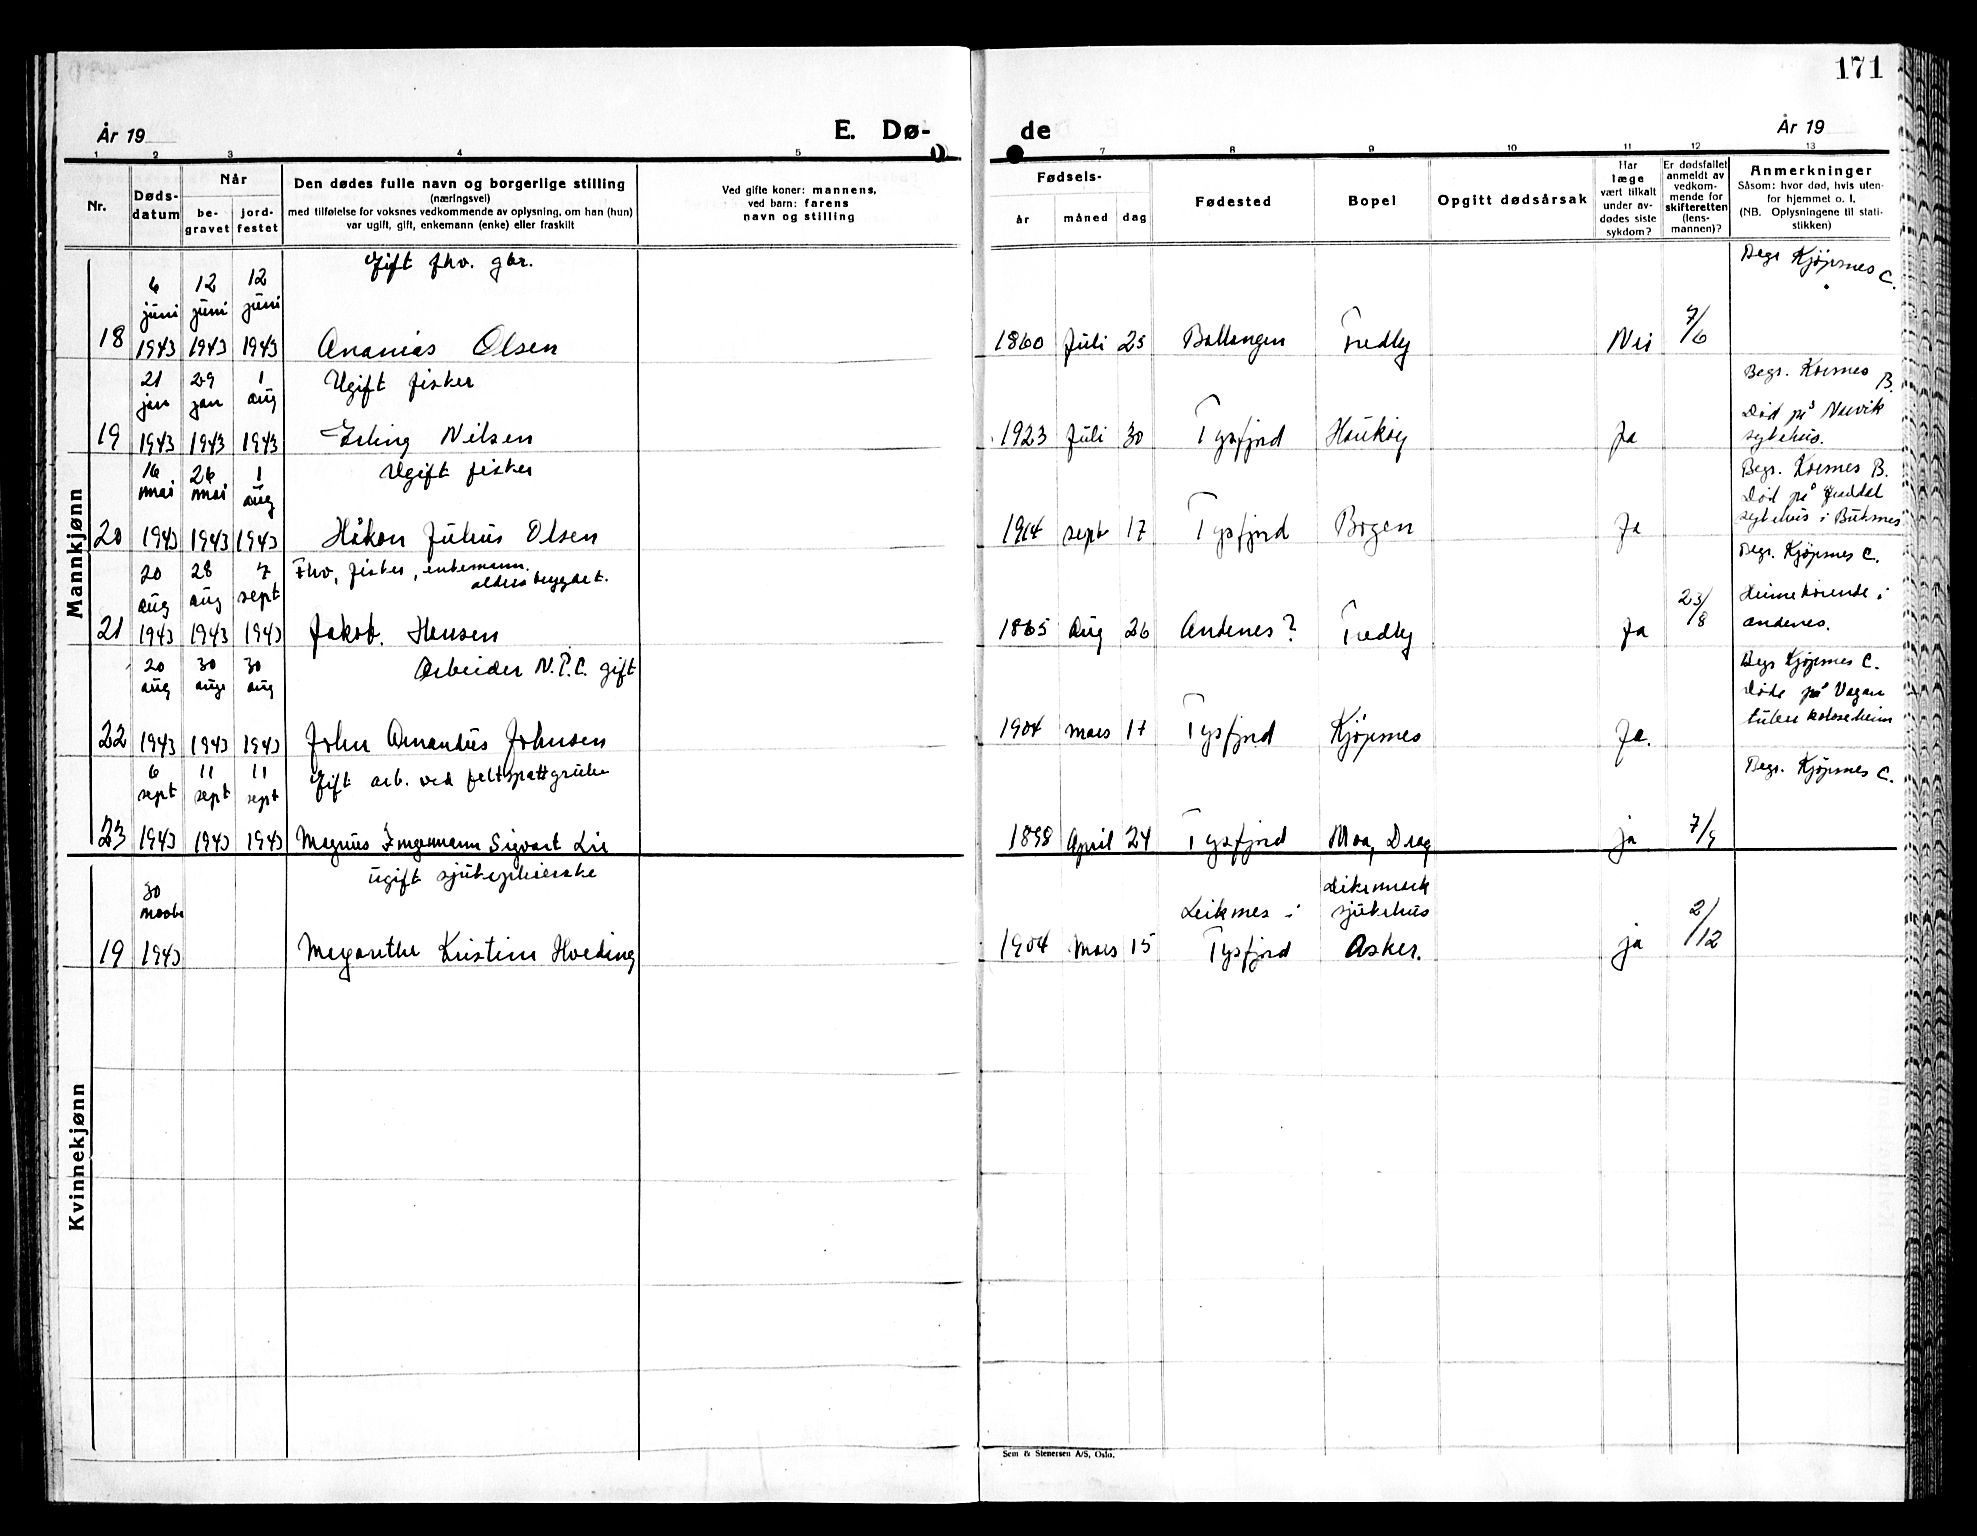 171
År 19
E. Dø-
de
År 19
1 2 3 4 5
7 8 9 10 11 12 13
Nr.
Døds-
datum
Når
be-
gravet
jord-
festet
Den dødes fulle navn og borgerlige stilling
(næringsvei)
med tilføielse for voksnes vedkommende av oplysning, om han (hun)
var ugift, gift, enkemann (enke) eller fraskilt
Ved gifte koner: mannens,
ved barn: farens
navn og stilling
Fødsels-
år måned dag
Fødested
Bopel
Opgitt dødsårsak
Har
læge
vært tilkalt
under av-
dødes siste
sykdom?
Er dødsfallet
anmeldt av
vedkom-
mende for
skifteretten
(lens-
mannen)?
Anmerkninger
Såsom: hvor død, hvis uten-
for hjemmet o. l.
(NB. Oplysningene til stati-
stikken)
Mannkjønn
Gift fhv. gbr.
Begr Kjøpsnes C.
6 12 12
juni juni juni
18 1943 1943 1943 Ananias Olsen 1860 Juli 25 Ballangen Fredly Nei 7/6
21 29 1 Ugift fisker Begr. Korsnes B.
jan jan aug Død på Narvik
19 1943 1943 1943 Erling Nilsen 1923 Juli 30 Tysfjord Haukøy Ja sykehus.
16 26 1 Ugift fisker Begr. Korsnes B.
mai mai aug Død på Gravdal
20 1943 1943 1943 Håkon Julius Olsen 1914 sept 17 Tysfjord Bogen Ja sykehus i Buksnes
20 28 7 Fhv. fisker, enkemann. Begr. Kjøpsnes C.
alderstrygdet.
aug aug sept 23/8 Heimehørende i
21 1943 1943 1943 Jakob. Hansen 1865 Aug 26 Andenes? Fredly Ja andenes.
20 30 30 Arbeider N.P.C. gift Begr Kjøpsnes C.
aug aug aug Døde på Vågan
22 1943 1943 1943 John Amandus Johnsen 1904 mars 17 Tysfjord Kjøpsnes Ja. tuberkoloseheim
6 11 11 Gift arb. ved feltspattgrube Begr. Kjøpsnes C.
sept sept sept
23 1943 1943 1943 Magnus Ingemann Sigvart Lie 1898 April 24 Tysfjord Moa, Drag ja 7/9
Kvinnekjønn
ugift sjukepleierske
30 novbr Leiknes i sjukehus 2/12
19 1943 Margrethe Kristine Hveding 1904 Mars 15 Tysfjord Asker. ja
Sem & Stenersen A/S, Oslo.